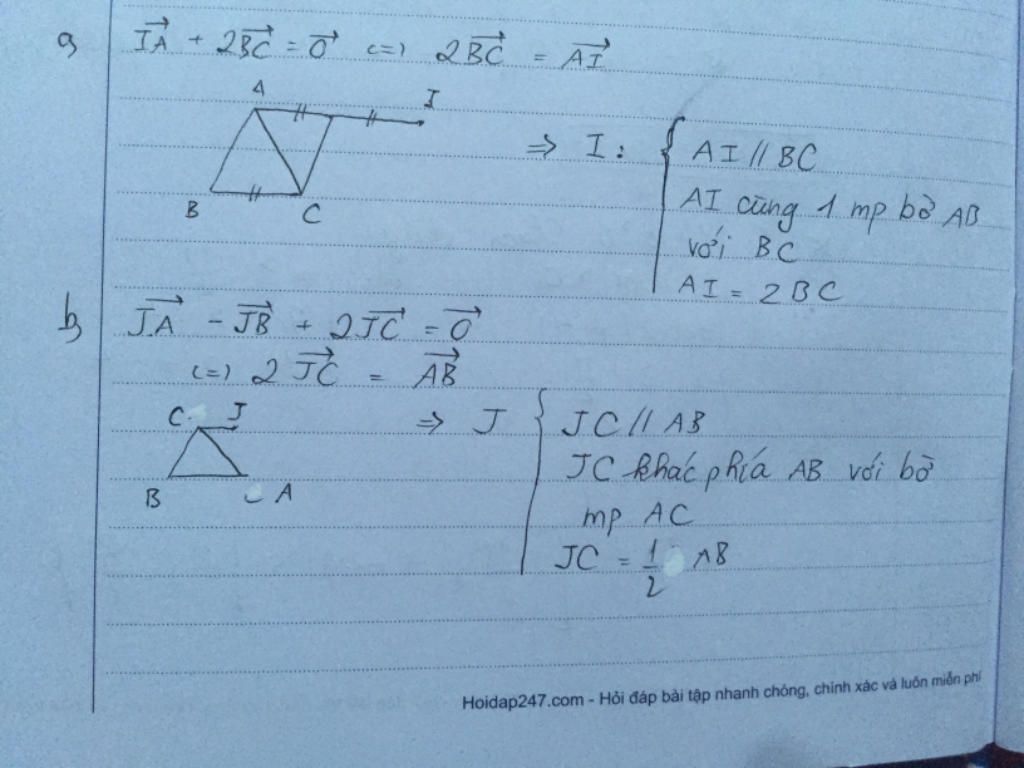 a) $\overrightarrow{IA} + 2\overrightarrow{BC} = \overrightarrow{0}$ (=) $2\overrightarrow{BC} = \overrightarrow{AI}$
A I
B C
⇒ I: { AI // BC
AI cùng 1 mp bờ AB
với BC
AI = 2BC
b) $\overrightarrow{JA} - \overrightarrow{JB} + 2\overrightarrow{JC} = \overrightarrow{0}$
(=) $2\overrightarrow{JC} = \overrightarrow{AB}$
C J
B A
⇒ J { JC // AB
JC khác phía AB với bờ
mp AC
JC = $\frac{1}{2}$ AB
Hoidap247.com - Hỏi đáp bài tập nhanh chóng, chính xác và luôn miễn phí